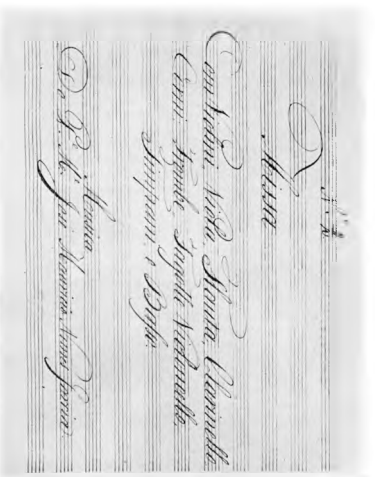 Missa
Com Violini, Viole, Flauta, Clarinette,
Corni, Trombe, Fagotti, Violoncello,
Timpani, e Basso
Musica
Do P.e M.e José Mauricio Nunes Garcia